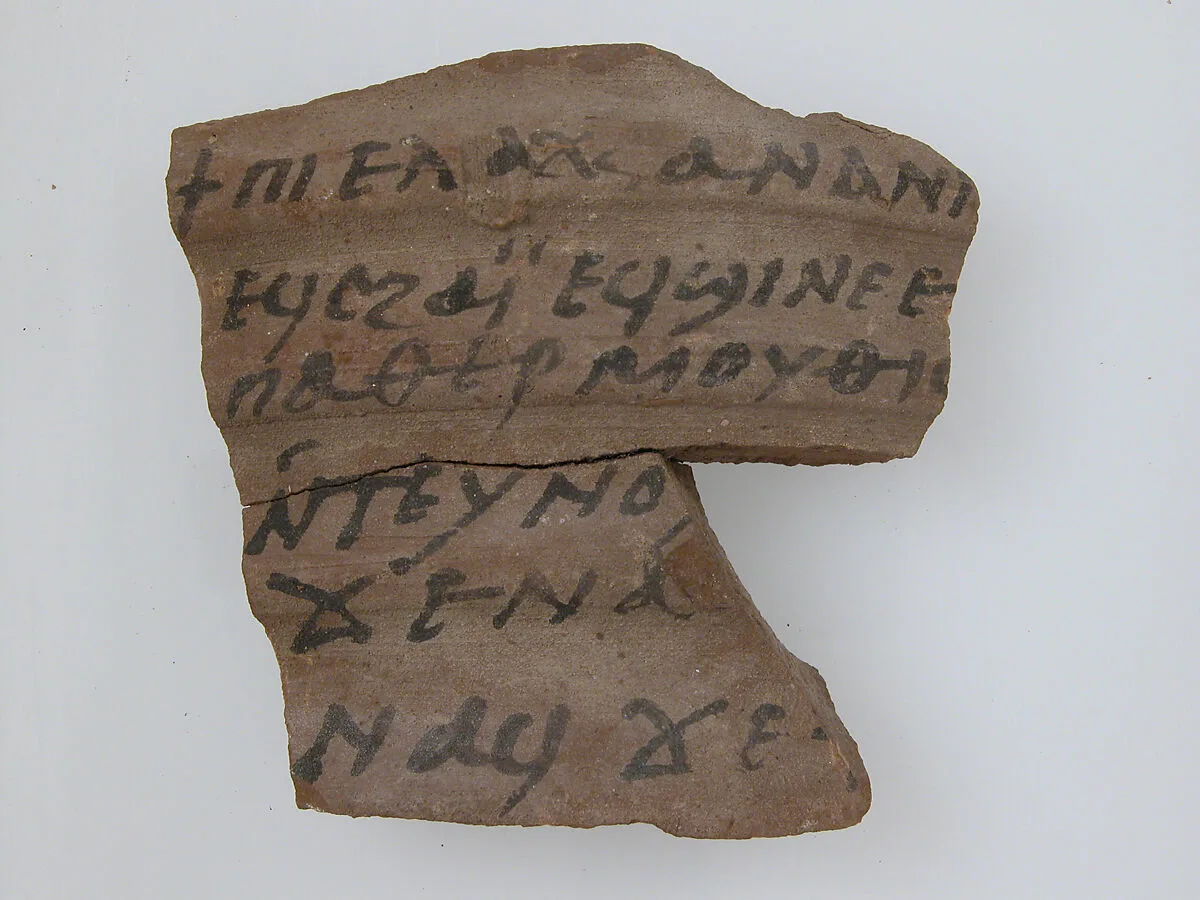 ϯ ⲡⲓⲉⲗⲁⲭ ⲁⲛⲁⲛⲓ
ⲉϥⲥϩⲁⲓ̈ ⲉϥϣⲓⲛⲉ ⲉ
ⲡⲁⲑⲉⲣⲙⲟⲩⲑⲓⲟ
ⲛ̄ⲧⲉⲩⲛⲟ
ϫⲉⲛⲁ
ⲛⲁϥ ϫⲉ